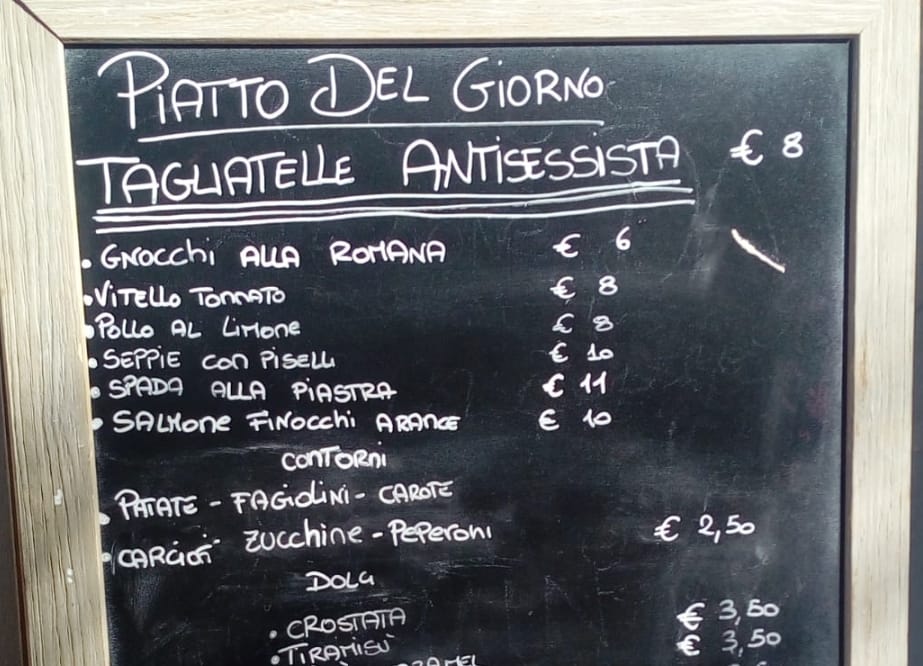 PIATTO DEL GIORNO
TAGLIATELLE ANTISESSISTA € 8
• GNOCCHI ALLA ROMANA € 6
• VITELLO TONNATO € 8
• POLLO AL LIMONE € 8
• SEPPIE CON PISELLI € 10
• SPADA ALLA PIASTRA € 11
• SALMONE FINOCCHI ARANCE € 10
CONTORNI
• PATATE - FAGIOLINI - CAROTE
• CARCIOFI ZUCCHINE - PEPERONI € 2,50
DOLCI
• CROSTATA € 3,50
• TIRAMISÙ € 3,50